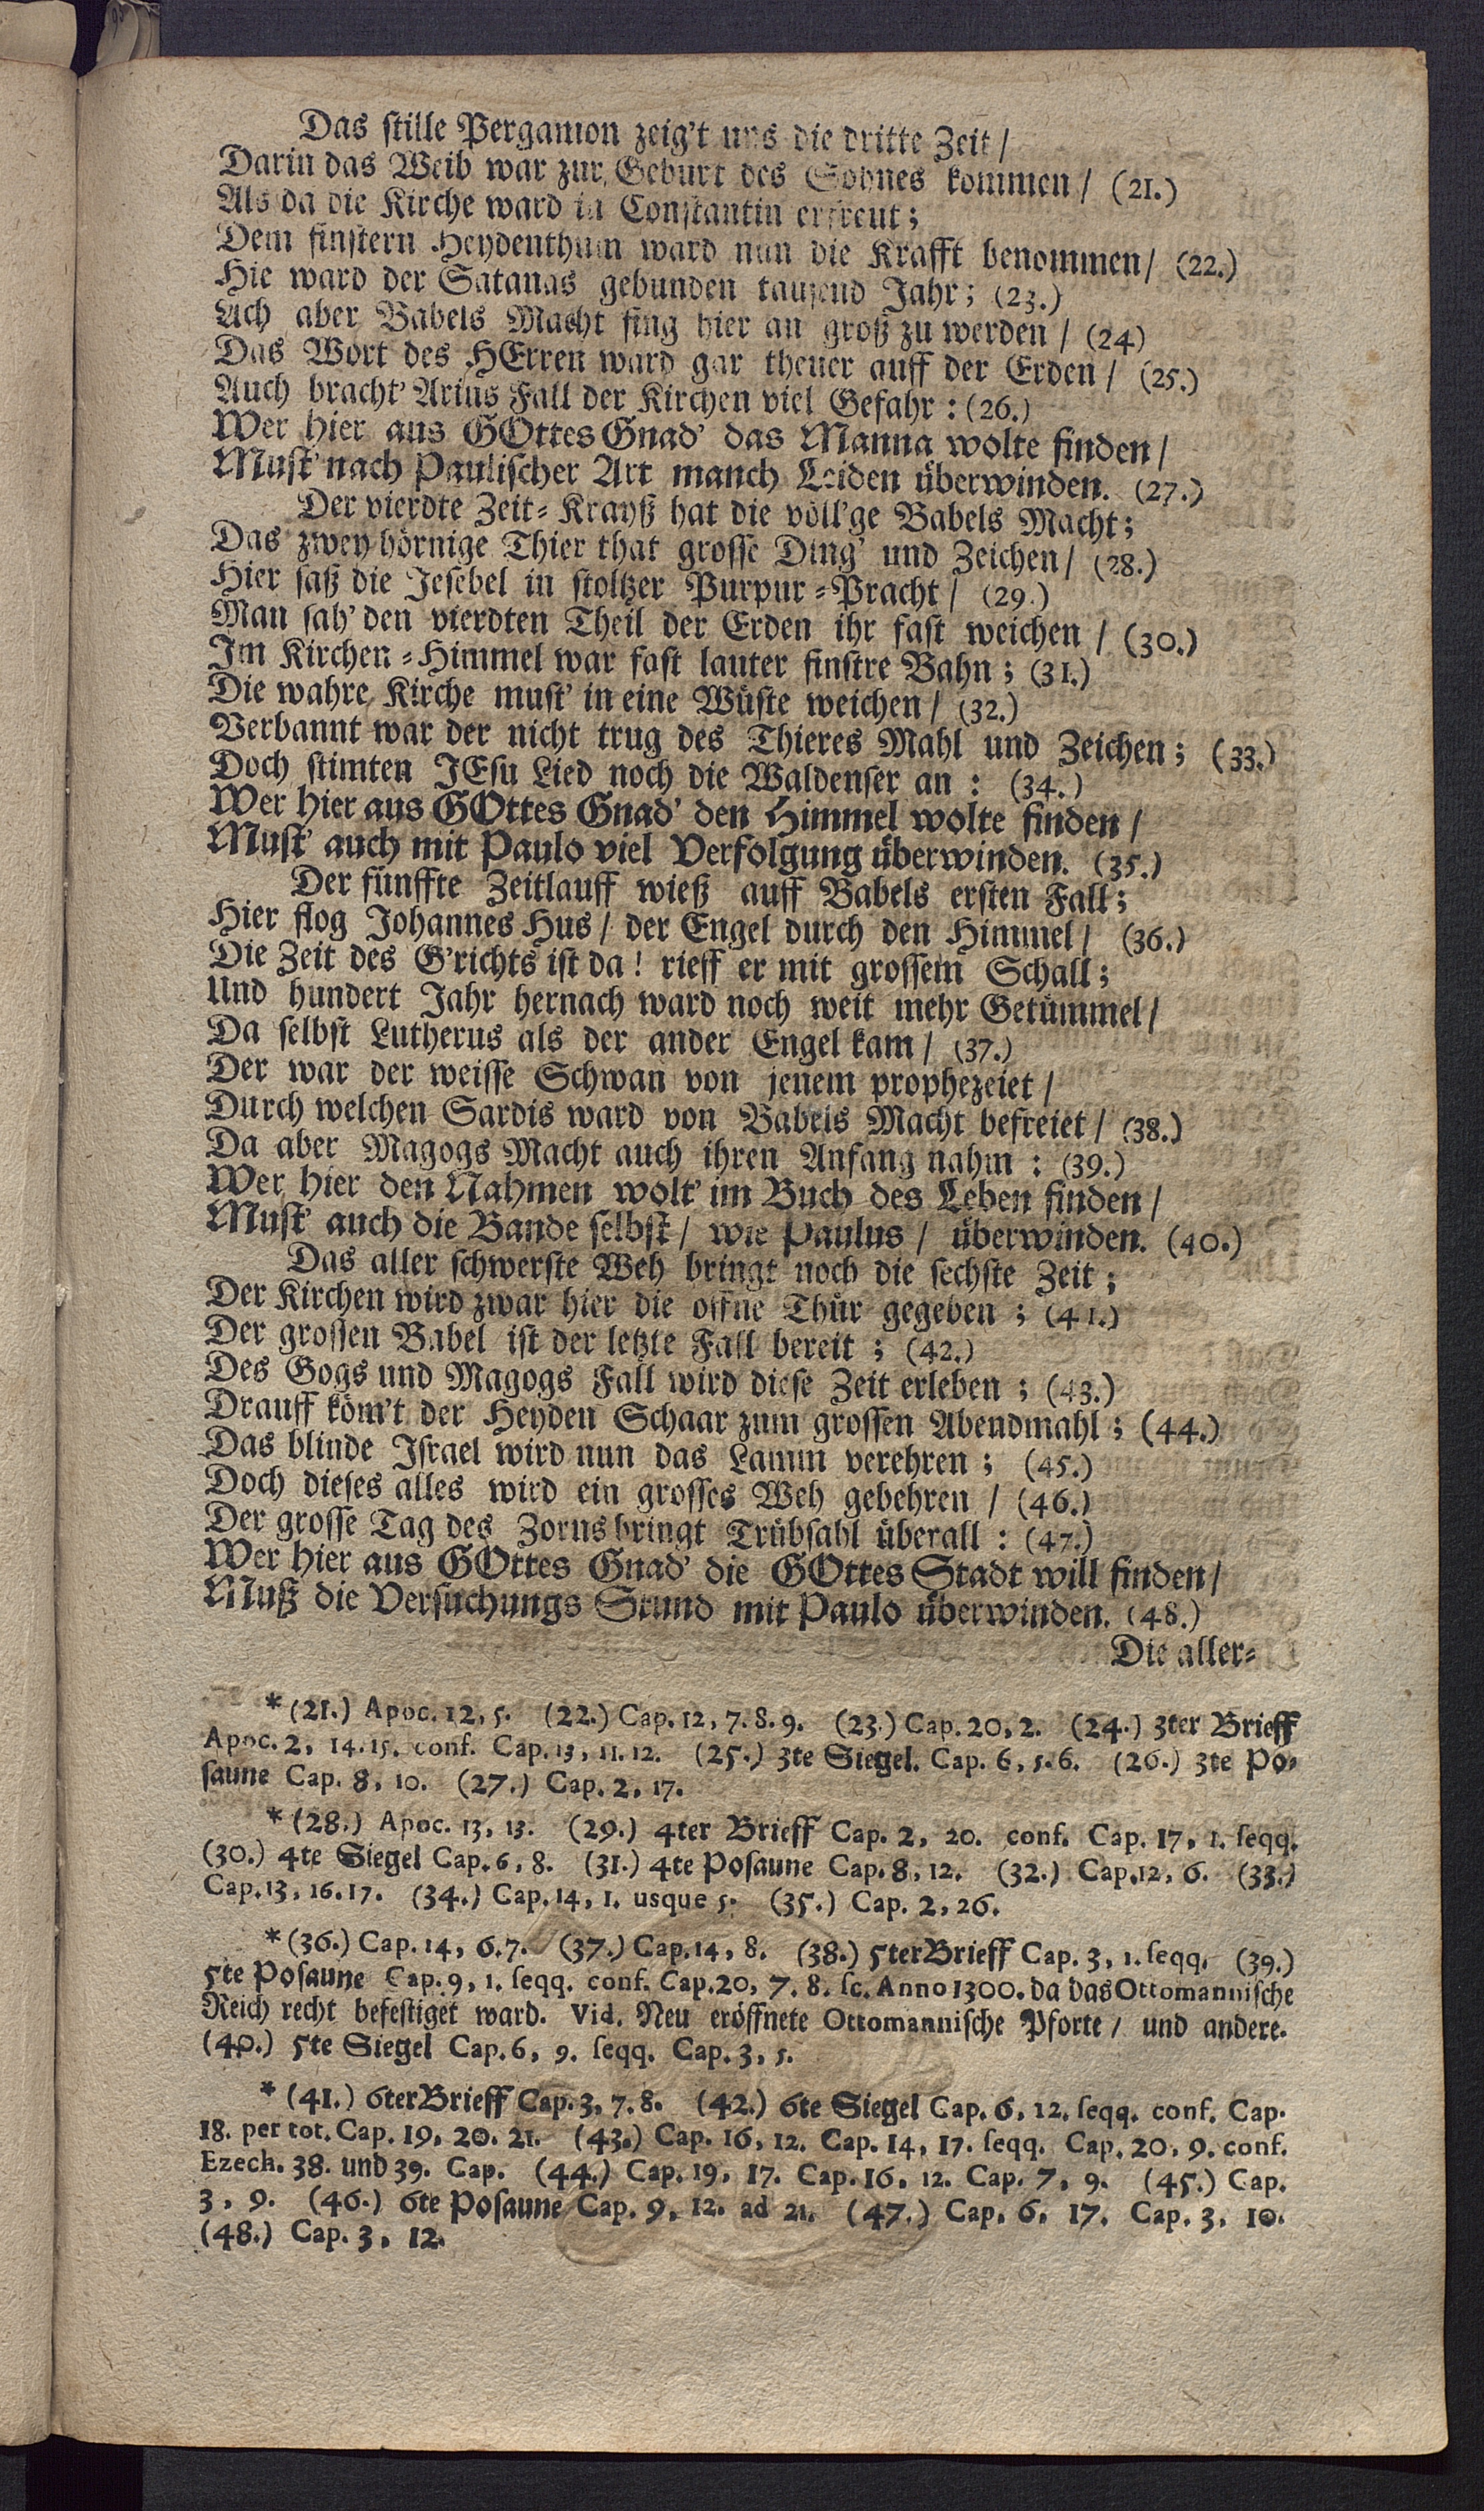 Das stille Pergamon zeig't uns die dritte Zeit /
Darin das Weib war zur Geburt des Sohnes kommen / (21.)
Als da die Kirche ward in Constantin erfreut;
Dem finstern Heydenthum ward nun die Krafft benommen / (22.)
Hie ward der Satanas gebunden tausend Jahr; (23.)
Ach aber Babels Macht fing hier an groß zu werden / (24)
Das Wort des HErren ward gar theuer auff der Erden / (25.)
Auch bracht' Arius Fall der Kirchen viel Gefahr: (26.)
Wer hier aus GOttes Gnad' das Manna wolte finden /
Must' nach Paulischer Art manch Leiden überwinden. (27.)
Der vierdte Zeit-Krayß hat die völl'ge Babels Macht;
Das zwey hörnige Thier that grosse Ding' und Zeichen / (28.)
Hier saß die Jesebel in stoltzer Purpur-Pracht / (29.)
Man sah' den vierdten Theil der Erden ihr fast weichen / (30.)
Im Kirchen-Himmel war fast lauter finstre Bahn; (31.)
Die wahre Kirche must' in eine Wüste weichen / (32.)
Verbannt war der nicht trug des Thieres Mahl und Zeichen; (33.)
Doch stimten JEsu Lied noch die Waldenser an: (34.)
Wer hier aus GOttes Gnad' den Himmel wolte finden /
Must' auch mit Paulo viel Verfolgung überwinden. (35.)
Der fünffte Zeitlauff wieß auff Babels ersten Fall;
Hier flog Johannes Hus / der Engel durch den Himmel / (36.)
Die Zeit des G'richts ist da! rieff er mit grossem Schall;
Und hundert Jahr hernach ward noch weit mehr Getümmel /
Da selbst Lutherus als der ander Engel kam / (37.)
Der war der weisse Schwan von jenem prophezeiet /
Durch welchen Sardis ward von Babels Macht befreiet / (38.)
Da aber Magogs Macht auch ihren Anfang nahm: (39.)
Wer hier den Nahmen wolt' im Buch des Leben finden /
Must' auch die Bande selbst / wie Paulus / überwinden. (40.)
Das aller schwerste Weh bringt noch die sechste Zeit;
Der Kirchen wird zwar hier die offne Thür gegeben; (41.)
Der grossen Babel ist der letzte Fall bereit; (42.)
Des Gogs und Magogs Fall wird diese Zeit erleben; (43.)
Drauff köm't der Heyden Schaar zum grossen Abendmahl; (44.)
Das blinde Israel wird nun das Lamm verehren; (45.)
Doch dieses alles wird ein grosses Weh gebehren / (46.)
Der grosse Tag des Zorns bringt Trübsahl überall: (47.)
Wer hier aus GOttes Gnad' die GOttes Stadt will finden /
Muß die Versuchungs Stund mit Paulo überwinden. (48.)
Die aller-
* (21.) Apoc. 12, 5. (22.) Cap. 12, 7. 8. 9. (23.) Cap. 20, 2. (24.) 3ter Brieff
Apoc. 2, 14. 15. conf. Cap. 13, 11. 12. (25.) 3te Siegel. Cap. 6, 5. 6. (26.) 3te Po-
saune Cap. 8, 10. (27.) Cap. 2, 17.
* (28.) Apoc. 13, 13. (29.) 4ter Brieff Cap. 2, 20. conf. Cap. 17, 1. seqq.
(30.) 4te Siegel Cap. 6, 8. (31.) 4te Posaune Cap. 8, 12. (32.) Cap. 12, 6. (33.)
Cap. 13, 16. 17. (34.) Cap. 14, 1. usque 5. (35.) Cap. 2, 26.
* (36.) Cap. 14, 6. 7. (37.) Cap. 14, 8. (38.) 5ter Brieff Cap. 3, 1. seqq. (39.)
5te Posaune Cap. 9, 1. seqq. conf. Cap. 20, 7. 8. sc. Anno 1300. da das Ottomannische
Reich recht befestiget ward. Vid. Neu eröffnete Ottomannische Pforte / und andere.
(40.) 5te Siegel Cap. 6, 9. seqq. Cap. 3, 5.
* (41.) 6ter Brieff Cap. 3, 7. 8. (42.) 6te Siegel Cap. 6, 12. seqq. conf. Cap.
18. per tot. Cap. 19, 20. 21. (43.) Cap. 16, 12. Cap. 14, 17. seqq. Cap. 20, 9. conf.
Ezech. 38. und 39. Cap. (44.) Cap. 19, 17. Cap. 16, 12. Cap. 7, 9. (45.) Cap.
3, 9. (46.) 6te Posaune Cap. 9, 12. ad 21. (47.) Cap. 6, 17. Cap. 3, 10.
(48.) Cap. 3, 12.